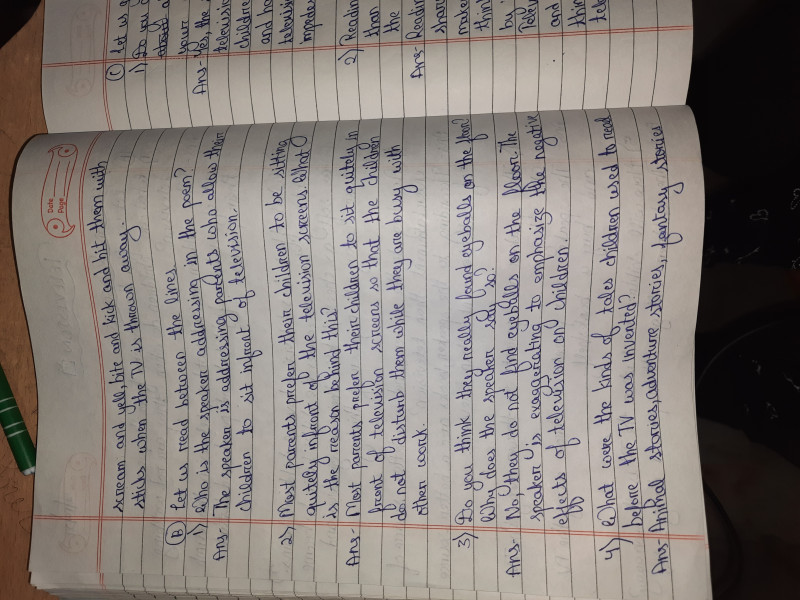 Date
Page
scream and yell, bite and kick and hit them with
sticks when the TV is thrown away.
(B) Let us read between the lines
1) Who is the speaker addressing in the poem?
Ans- The speaker is addressing parents who allow their
children to sit infront of television.
2) Most parents prefer their children to be sitting
quitely infront of the television screens. What
is the reason behind this?
Ans- Most parents prefer their children to sit quitely in
front of television screens so that the children
do not disturb them while they are busy with
other work.
3) Do you think they really found eyeballs on the floor?
Why does the speaker say so?
Ans- No, they do not find eyeballs on the floor. The
speaker is exaggerating to emphasize the negative
effects of television on children.
4) What were the kinds of tales children used to read
before the TV was invented?
Ans- Animal stories, adventure stories, fantasy stories
(C) Let us
1) Do you
about
your
Ans- Yes, the
television
children
and
television
impede
2) Reading
than
the
Ans- Reading
shar
make
thin
by
Telev
and
thin
tel